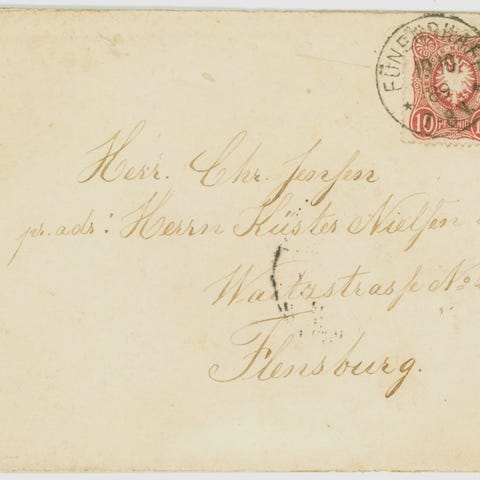 FÜNF
10 PFENNIG
Herr. Chr. Jensen
pr. adr: Herrn Küster Nielsen
Waitzstrasse No
Flensburg.